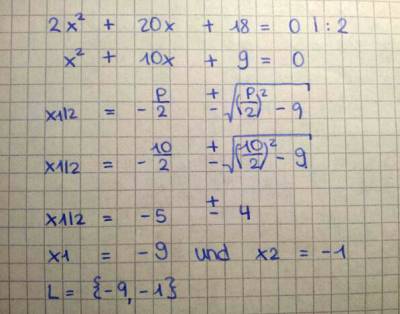 2x² + 20x + 18 = 0 | : 2
x² + 10x + 9 = 0
x1/2 = - p/2 ± √((p/2)² - 9)
x1/2 = - 10/2 ± √((10/2)² - 9)
x1/2 = -5 ± 4
x1 = -9 und x2 = -1
L = {-9, -1}